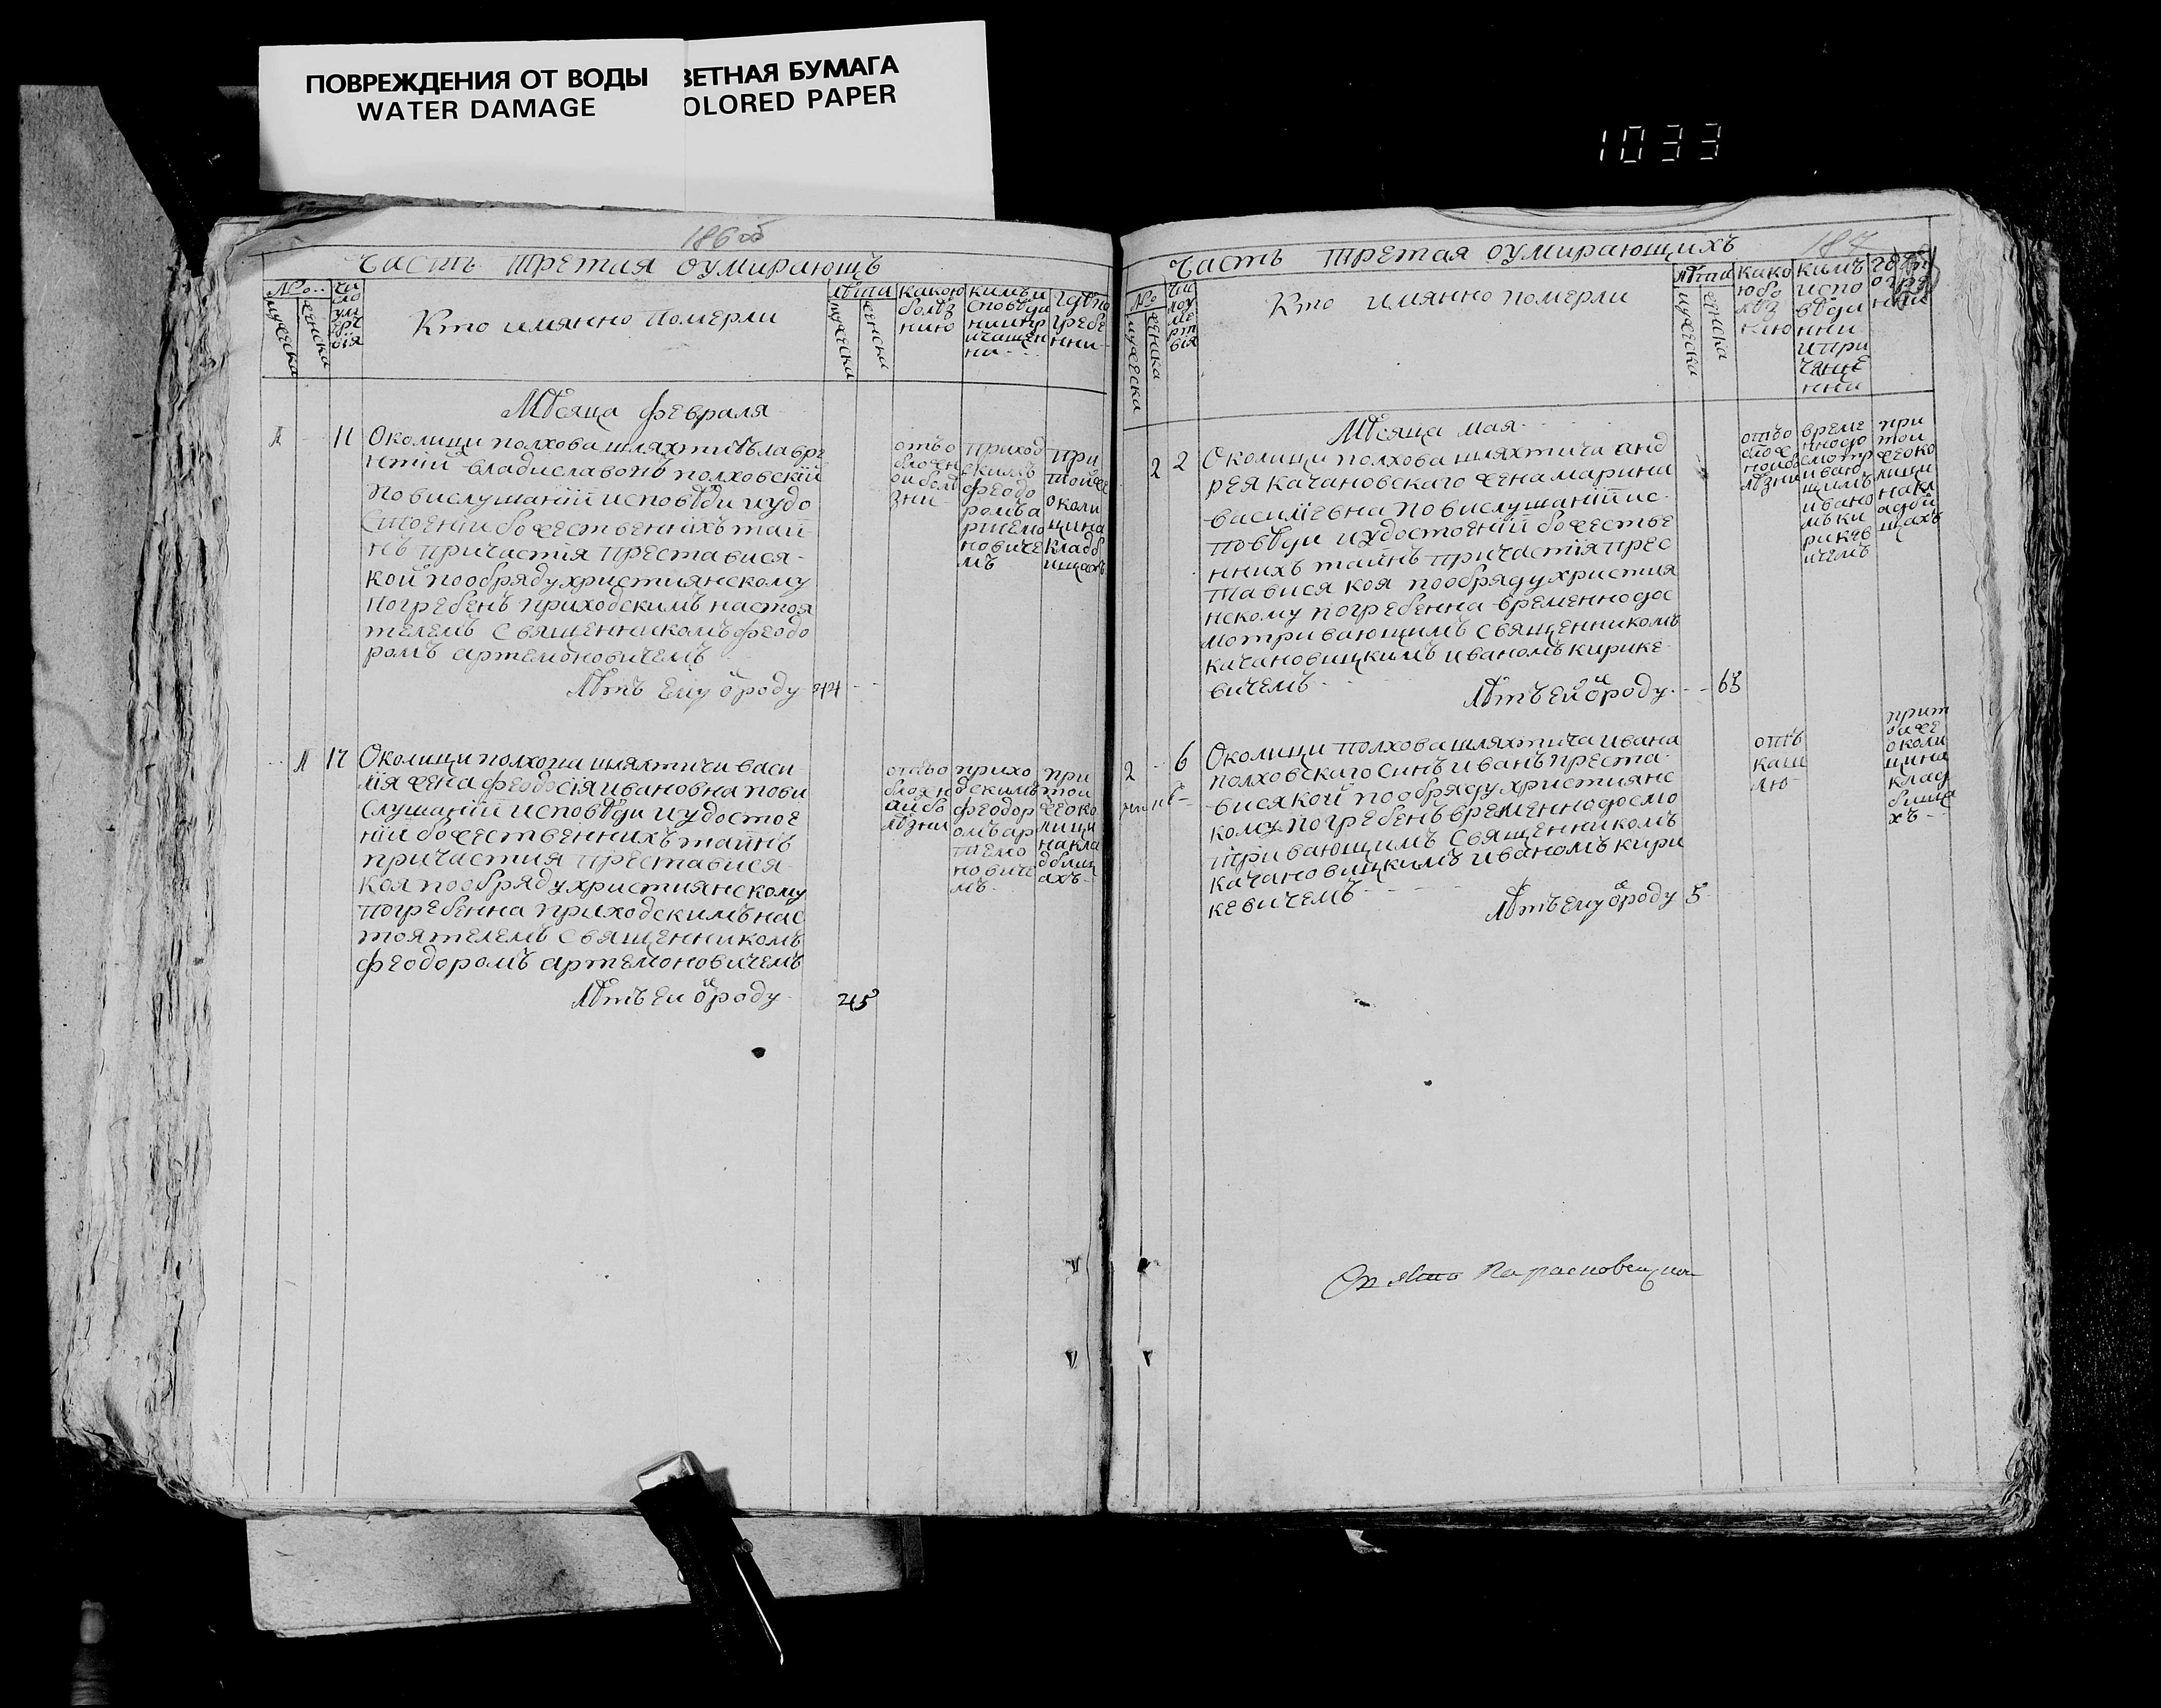 ПОВРЕЖДЕНИЯ ОТ ВОДЫ
WATER DAMAGE
ВЕТНАЯ БУМАГА
OLORED PAPER
1033
186 об
Часть третая оумирающъ
№
мужеска
женска
Чи
сло
ум
ерт
вія
Кто имянно померли
лѣта
мужеска
женска
какою
болѣз
нию
кимъ и
сповѣда
ни и пр
ичащен
ни
гдѣ по
гребе
нни
Мѣсяца февраля
1 11
Околици полхова шляхтичъ лавре
нтій владиславовъ полховскій
по вислушаніи исповѣди и удо
стоеніи божественнихъ тай
нъ причастія преставися
кой по обряду християнскому
погребенъ приходскимъ настоя
телемъ священникомъ феодо
ромъ артемоновичемъ
Лѣтъ ему о роду 44
отъ о
бложн
ой болѣ
зни
приход
скимъ
феодо
ромъ а
ртемо
новиче
мъ
при
той же
околи
ци на
кладб
ищахъ
1 17
Околици полхова шляхтича васи
лія жена феодосія ивановна по ви
слушаніи исповѣди и удостое
ніи божественнихъ тайнъ
причастия преставися
коя по обряду християнскому
погребенна приходскимъ нас
тоятелемъ священникомъ
феодоромъ артемоновичемъ
Лѣтъ ей о роду 45
отъ о
бложн
ай бо
лѣзни
прихо
дскимъ
феодор
омъ ар
темо
новиче
мъ
при
той
же око
лици
на кла
дбищ
ахъ
Часть третая оумирающихъ
187
№
мужеска
женска
Чи
Кто имянно померли
лѣта
мужеска
женска
како
ю бо
лѣз
нию
кимъ
испо
вѣда
нни
и при
чаще
нни
Мѣсяца мая
2 2
Околици полхова шляхтича анд
рея качановскаго жена марина
василіевна по вислушаніи ис
повѣди и удостоеніи божестве
ннихъ тайнъ причастія прес
тавися коя по обряду християн
скому погребенна временно до
мотривающимъ священникомъ
качановицкимъ иваномъ кирике
вичемъ
Лѣтъ ей о роду 65
отъ о
блож
ной бо
лѣзни
време
нно до
смотр
иваю
щимъ
ивано
мъ ки
рикев
ичемъ
при
той
же око
лици
на кл
адби
щахъ
2 6
Околици полхова шляхтича ивана
полховскаго синъ иванъ преста
вися кой по обряду християнс
кому погребенъ временно досмо
тривающимъ священникомъ
качановицкимъ иваномъ кири
кевичемъ
Лѣтъ ему о роду 5
отъ
каш
лю
при т
ой же
околи
ци на
клад
бища
хъ